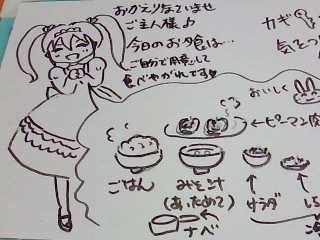 おかえりなさいませ
ご主人様♪
今日のお夕食は…
ご自分で用意して
食べやがれです♥
カギ
気をつ
おいしく
←ピーマン肉
ごはん
みそ汁
(あっためて)
↑
サラダ
↑
ナベ